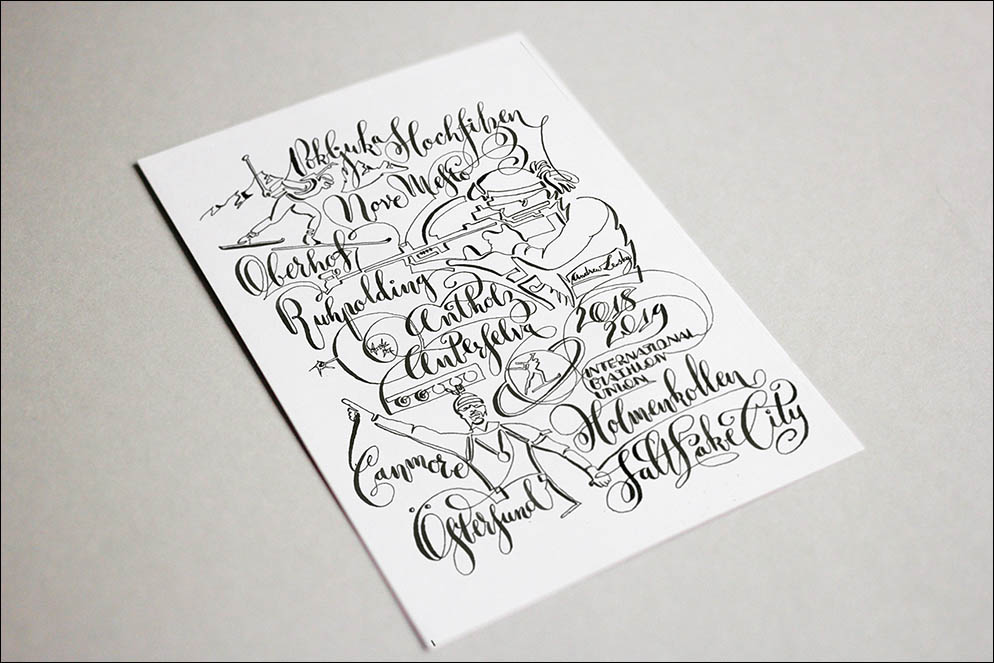 Pokljuka Hochfilzen
Nove Mesto
Oberhof
Ruhpolding
Antholz
Anterselva
2018
2019
INTERNATIONAL
BIATHLON
UNION
Holmenkollen
Salt Lake City
Canmore
Östersund